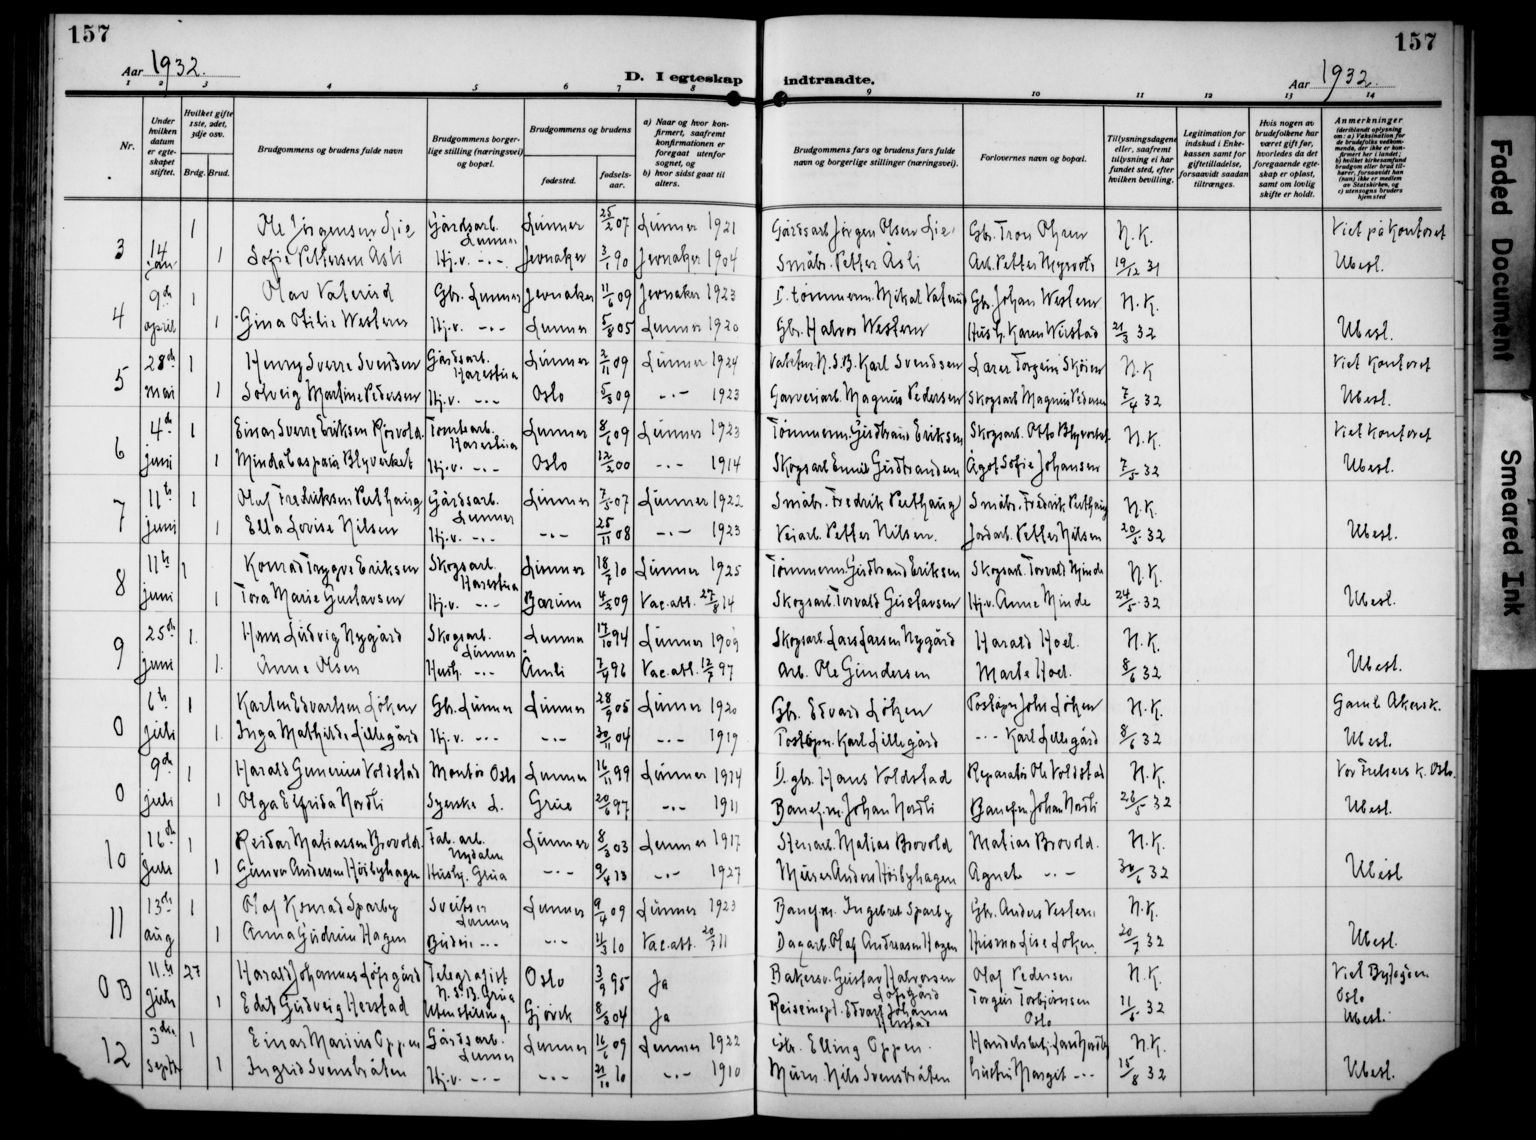 157
157
Aar 1932.
D. I egteskap indtraadte.
Aar 1932.
1 2 3 4 5 6 7 8 9 10 11 12 13 14
Nr.
Under hvilken datum er egteskapet stiftet.
Hvilket gifte 1ste, 2det, 3dje osv.
Brdg. Brud.
Brudgommens og brudens fulde navn
Brudgommens borgerlige stilling (næringsvei) og bopæl.
Brudgommens og brudens
fødested.
fødselsaar.
a) Naar og hvor konfirmert, saafremt konfirmationen er foregaat utenfor sognet, og
b) hvor sidst gaat til alters.
Brudgommens fars og brudens fars fulde navn og borgerlige stillinger (næringsvei).
Forlovernes navn og bopæl.
Tillysningsdagene eller, saafremt tillysning ei har fundet sted, efter hvilken bevilling.
Legitimation for indskud i Enkekassen samt for giftetilladelse, forsaavidt saadan tiltrænges.
Hvis nogen av brudefolkene har været gift før, hvorledes da det foregaaende egteskap er opløst, samt om lovlig skifte er holdt.
Anmerkninger
3 14 jan 1 Ole Jørgensen Lie Gårdsarb. Lunner Lunner 25/2 07 Lunner 1921 Gårdsarb Jørgen Olsen Lie Gbr. N.K. Viet på kontoret
1 Sofie Pettersen Åsli Hj.v. -"- Jevnaker 3/1 90 Jevnaker 1904 Småbr. Petter Åsli Arb. Petter 19/12 31 Ubesl.
4 9de april 1 Olav Vaterud Gbr. Lunner Jevnaker 11/6 09 Jevnaker 1923 D. tømmerm. Mikal Vaterud Gbr. Johan Western N.K.
1 Gina Otilie Western Hj.v. -"- Lunner 5/8 05 Lunner 1920 Gbr. Halvor Western Hush. Karen 21/3 32 Ubesl.
5 28de mai 1 Henry Sverre Svendsen Gårdsarb. Harestua Lunner 2/11 09 Lunner 1924 N.S.B. Karl Svendsen Lærer Torgein Skøien N.K. Viet kontoret
1 Solveig Martine Pedersen Hj.v. -"- Oslo 5/3 09 -"- 1923 Garveriarb. Magnus Pedersen Skogsarb Magnus Pedersen 7/4 32 Ubesl.
6 4de juni 1 Einar Sverre Eriksen Rosvold Tomtearb. Harestua Lunner 8/6 09 Lunner 1923 Tømmerm. Gudbrand Eriksen Skogsarb. Otto Blyverket N.K. Viet kontoret
1 Minda Casparia Blyverket Hj.v. -"- Oslo 12/2 00 -"- 1914 Skogsarb Emil Gudbrandsen Ågot Sofie Johansen 7/5 32 Ubesl.
7 11te juni 1 Olaf Fredriksen Vesthaug Gårdsarb. Lunner Lunner 7/5 07 Lunner 1922 Småbr. Fredrik Vesthaug Småbr. Fredrik Vesthaug N.K.
1 Ella Lovise Nilsen Hj.v. -"- -"- 25/11 08 -"- 1923 Veiarb. Petter Nilsen. Jordarb. Petter Nilsen 20/5 32 Ubesl.
8 11te juni 1 Konrad Trygve Eriksen Skogsarb. Harestua Lunner 18/7 10 Lunner 1925 Tømmerm. Gudbrand Eriksen Skogsarb. Torvald Minde N.K.
1 Tora Marie Gustavsen Hj.v. -"- Bærum 4/2 09 Vac.att. 27/8 14 Skogsarb. Torvald Gustavsen Hj.v. Anne Minde 24/5 32 Ubesl.
9 25de juni 1 Hans Ludvig Nygård Skogsarb. Lunner Lunner 17/10 94 Lunner 1909 Skogsarb. Lars Larsen Nygård Harald Hoel. N.K.
1. Anne Olsen Hush. -"- Åmli 7/4 96 Vac.att. 12/7 97 Arb. Ole Gundersen Marta Hoel. 8/6 32 Ubesl.
0 6te juli 1 Karsten Edvartsen Løken Gbr. Lunner Lunner 28/9 05 Lunner 1920 Gbr. Edvard Løken Poståpn John Løken N.K. Gamle Akersk.
1 Inga Mathilde Lillegård Hj.v. -"- -"- 30/11 04 -"- 1919 Poståpn. Karl Lillegård -"- Karl Lillegård 8/6 32 Ubesl.
0 9de juli 1 Harald Gunerius Voldstad Montør Oslo Lunner 16/11 99 Lunner 1914 D. gbr. Hans Voldstad Reparatør Ole Voldstad N.K. Vor Frelsers k. Oslo.
1 Olga Elfrida Nordli Syerske L. Grue 20/6 97 -"- 1911 Banefm. Johan Nordli Banefm Johan Nordli 26/5 32 Ubesl.
10 16de juli 1 Reidar Matiassen Brovold Fab. arb. Nydalen Lunner 8/3 03 Lunner 1917 Stenarb. Matias Brovold Matias Brovold. N.K.
1 Gunvor Andersen Høibyhagen Hushj. Grua -"- 9/4 13 -"- 1927 Murer Anders Høibyhagen Agnete -"- 30/6 32 Ubesl
11 13de aug 1 Olaf Konrad Sparby Sveitser Lunner Lunner 9/4 09 Lunner 1923 Banefm. Ingebret Sparby Gbr. Anders Vestern N.K.
1 Anna Gudrun Hagen Budeie -"- -"- 21/3 10 Vac.att. 20/7 11 Dagarb. Olaf Andreasen Hagen Husmo Lise Løken. 20/7 32 Ubesl.
0B 11te Juli 2 Harald Johannes Løfsgård Telegrafist N.S.B. Grua Oslo 3/9 95 Ja Bakersv. Gustav Halvorsen Løfsgård Olaf Pedersen N.K. Viet Byfogden Oslo
1 Edit Gudveig Herstad Uten stilling. Gjøvik 8/3 04 Ja Reiseinsp. Edvart Johannes Herstad Torgeir Torbjørnsen Oslo 11/6 32 Ubesl.
12 3dje sept. 1 Einar Marius Oppen Gårdsarb. Lunner Lunner 16/6 09 Lunner 1922 Gbr. Elling Oppen. N.K.
1 Ingrid Svenstråten Hj.v. -"- -"- 21/10 10 -"- 1910 Murm. Nils Svenstråten Margit -"- 15/8 32 Ubesl.
Faded Document
Smeared Ink